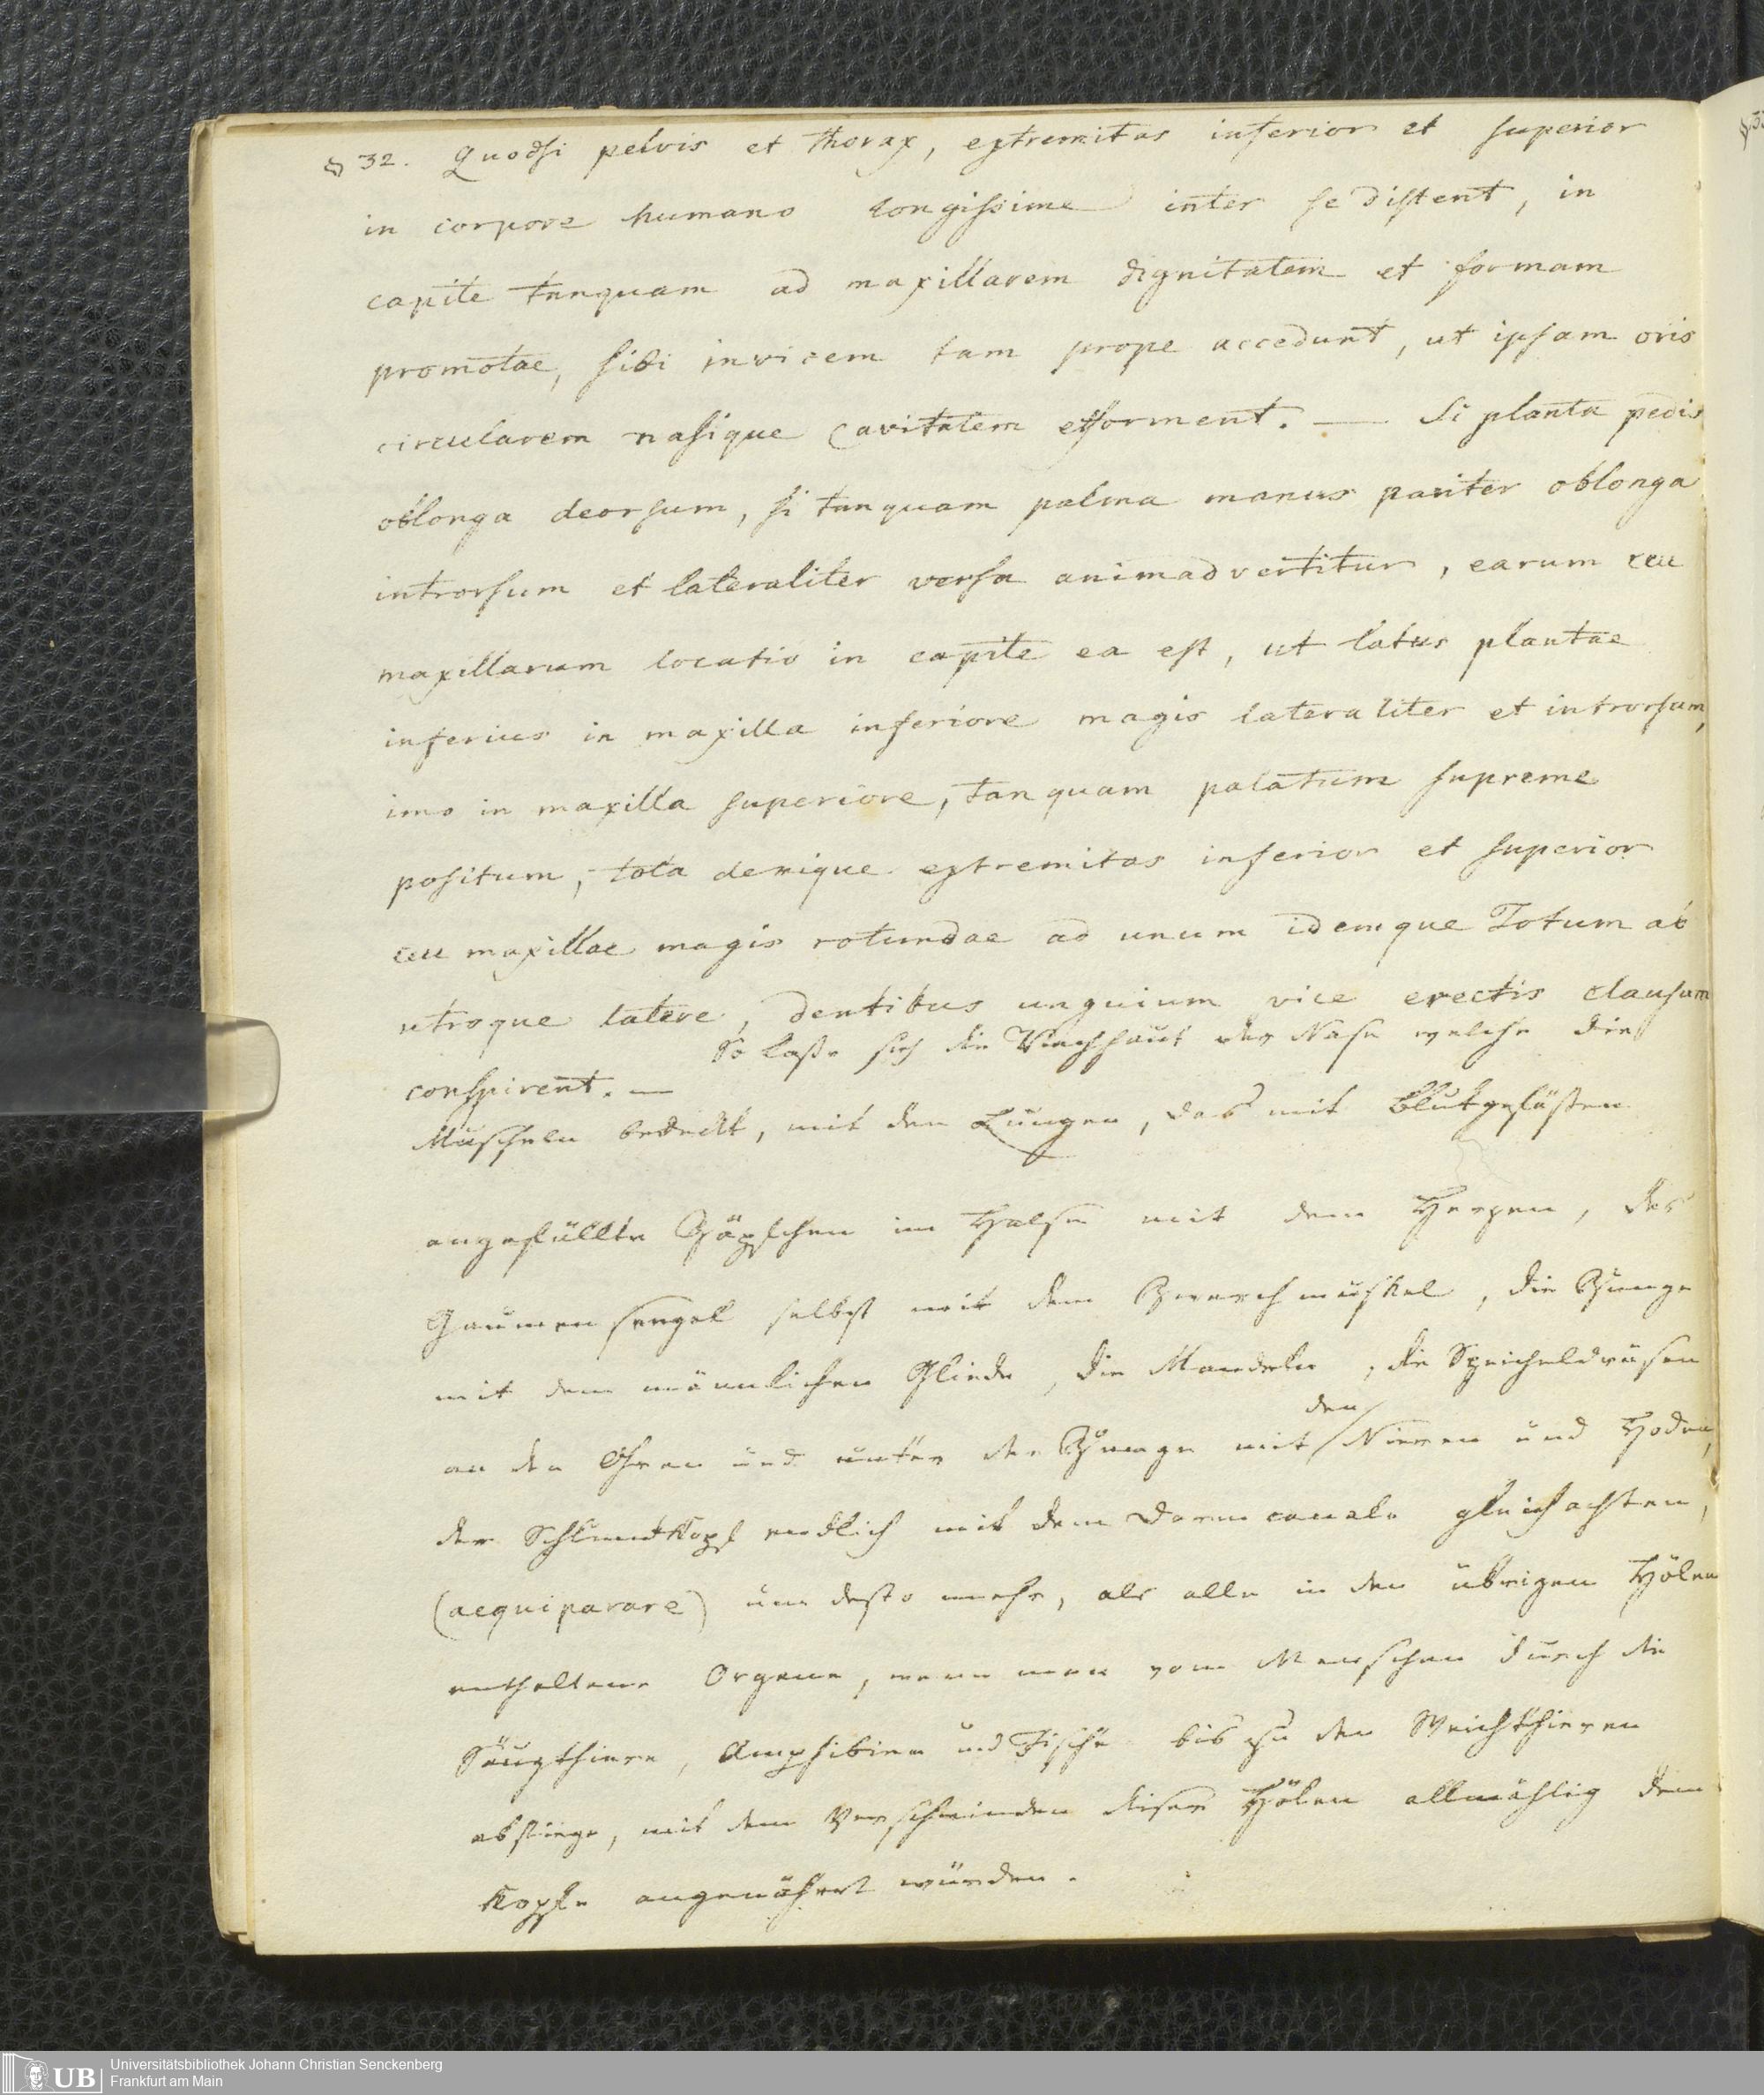 § 32. Quodsi pelvis et thorax, extremitas inferior et superior
in corpore humano longissime inter se distent, in
capite tanquam ad maxillarem dignitatem et formam
promotae, sibi invicem tam prope accedunt, ut ipsam oris
circularem nasique cavitatem efforment. — Si planta pedis
oblonga deorsum, si tanquam palma manus pariter oblonga
introrsum et lateraliter versa animadvertitur, earum ceu
maxillarum locatio in capite ea est, ut latus plantae
inferius in maxilla inferiore magis lateraliter et introrsum,
imo in maxilla superiore, tanquam palatum supreme
positum, tota denique extremitas inferior et superior
ceu maxillae magis rotundae ad unum idemque Totum ab
utroque latere, dentibus unguium vice erectis clausum
conspirent. —
So laße sich die Riechhaut der Nase welche die
Muscheln bedeckt, mit den Lungen, das mit Blutgefäßen
angefüllte Zäpfchen im Halse mit dem Herzen, das
Gaumensegel selbst mit dem Zwerchmuskel, die Zunge
mit dem männlichen Gliede, die Mandeln, die Speicheldrüsen
an den Ohren und unter der Zunge mit den Nieren und Hoden,
der Schlundkopf endlich mit dem Darmcanale gleichachten,
(aequiparare) um desto mehr, als alle in den übrigen Hölen
enthaltene Organe, wenn man vom Menschen durch die
Säugthiere, Amphibien und Fische bis zu den Weichthieren
abstiege, mit dem Verschwinden dieser Hölen allmählig dem
Kopfe angenähert würden.
Universitätsbibliothek Johann Christian Senckenberg
Frankfurt am Main
UB